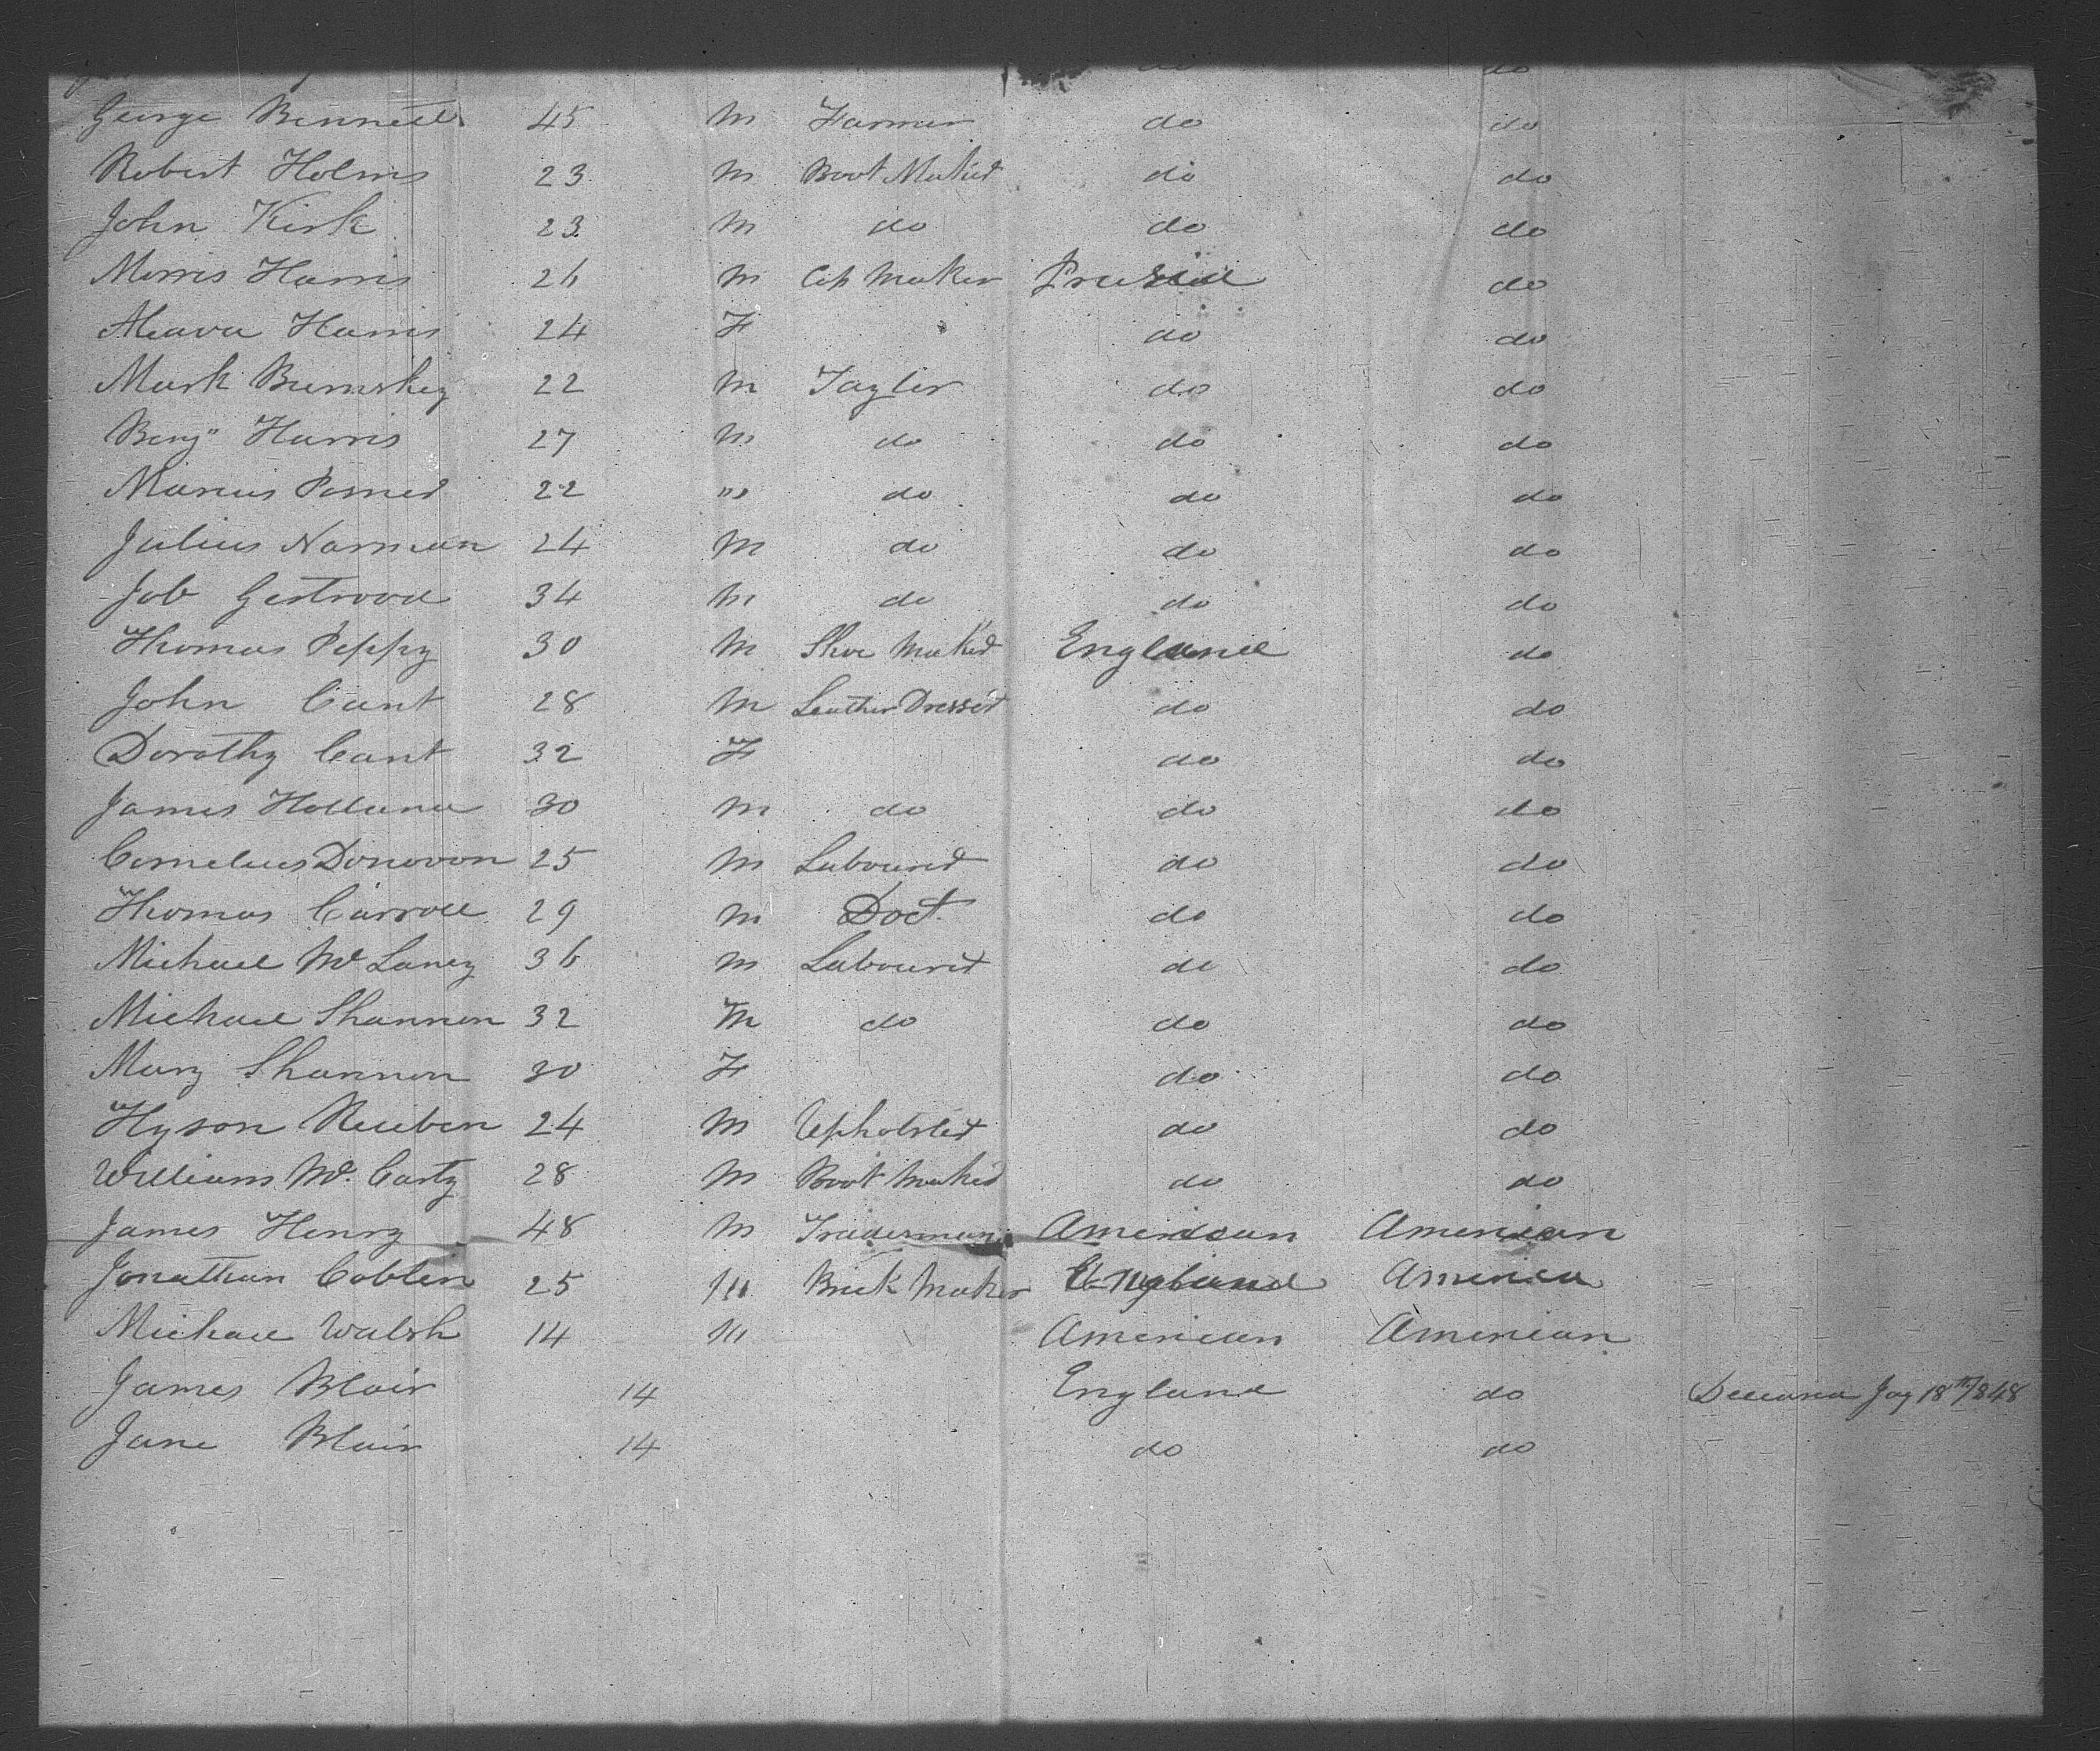 do do
George Bennett 45 M Farmer do do
Robert Holms 23 M Boot Maker do do
John Kirk 23 M do do do
Morris Harris 26 M Cap Maker Prusia do
Harris 24 F do do
Mark 22 M Taylor do do
Benj" Harris 27 M do do do
Marcus 22 " do do do
Julius Norman 24 M do do do
Job 34 M do do do
Thomas Peppy 30 M Shoe Maker England do
John Cant 28 M Leather Dresser do do
Dorothy Cant 32 F do do
James Holland 30 M do do do
Cornelius Donovon 25 M Labourer do do
Thomas Carroll 29 M Doct. do do
Michael Mc Laney 36 M Labourer do do
Michael Shannon 32 M do do do
Mary Shannon 30 F do do
Hyson Reuben 24 M Upholster do do
William Mc. Carty 28 M Boot Maker do do
James Henry 48 M Tradesman American American
Jonathan Coblen 25 M Brick Maker England America
Michael Walsh 14 M American American
James Blair 14 England do Deceased 18th/848
Jane Blair 14 do do